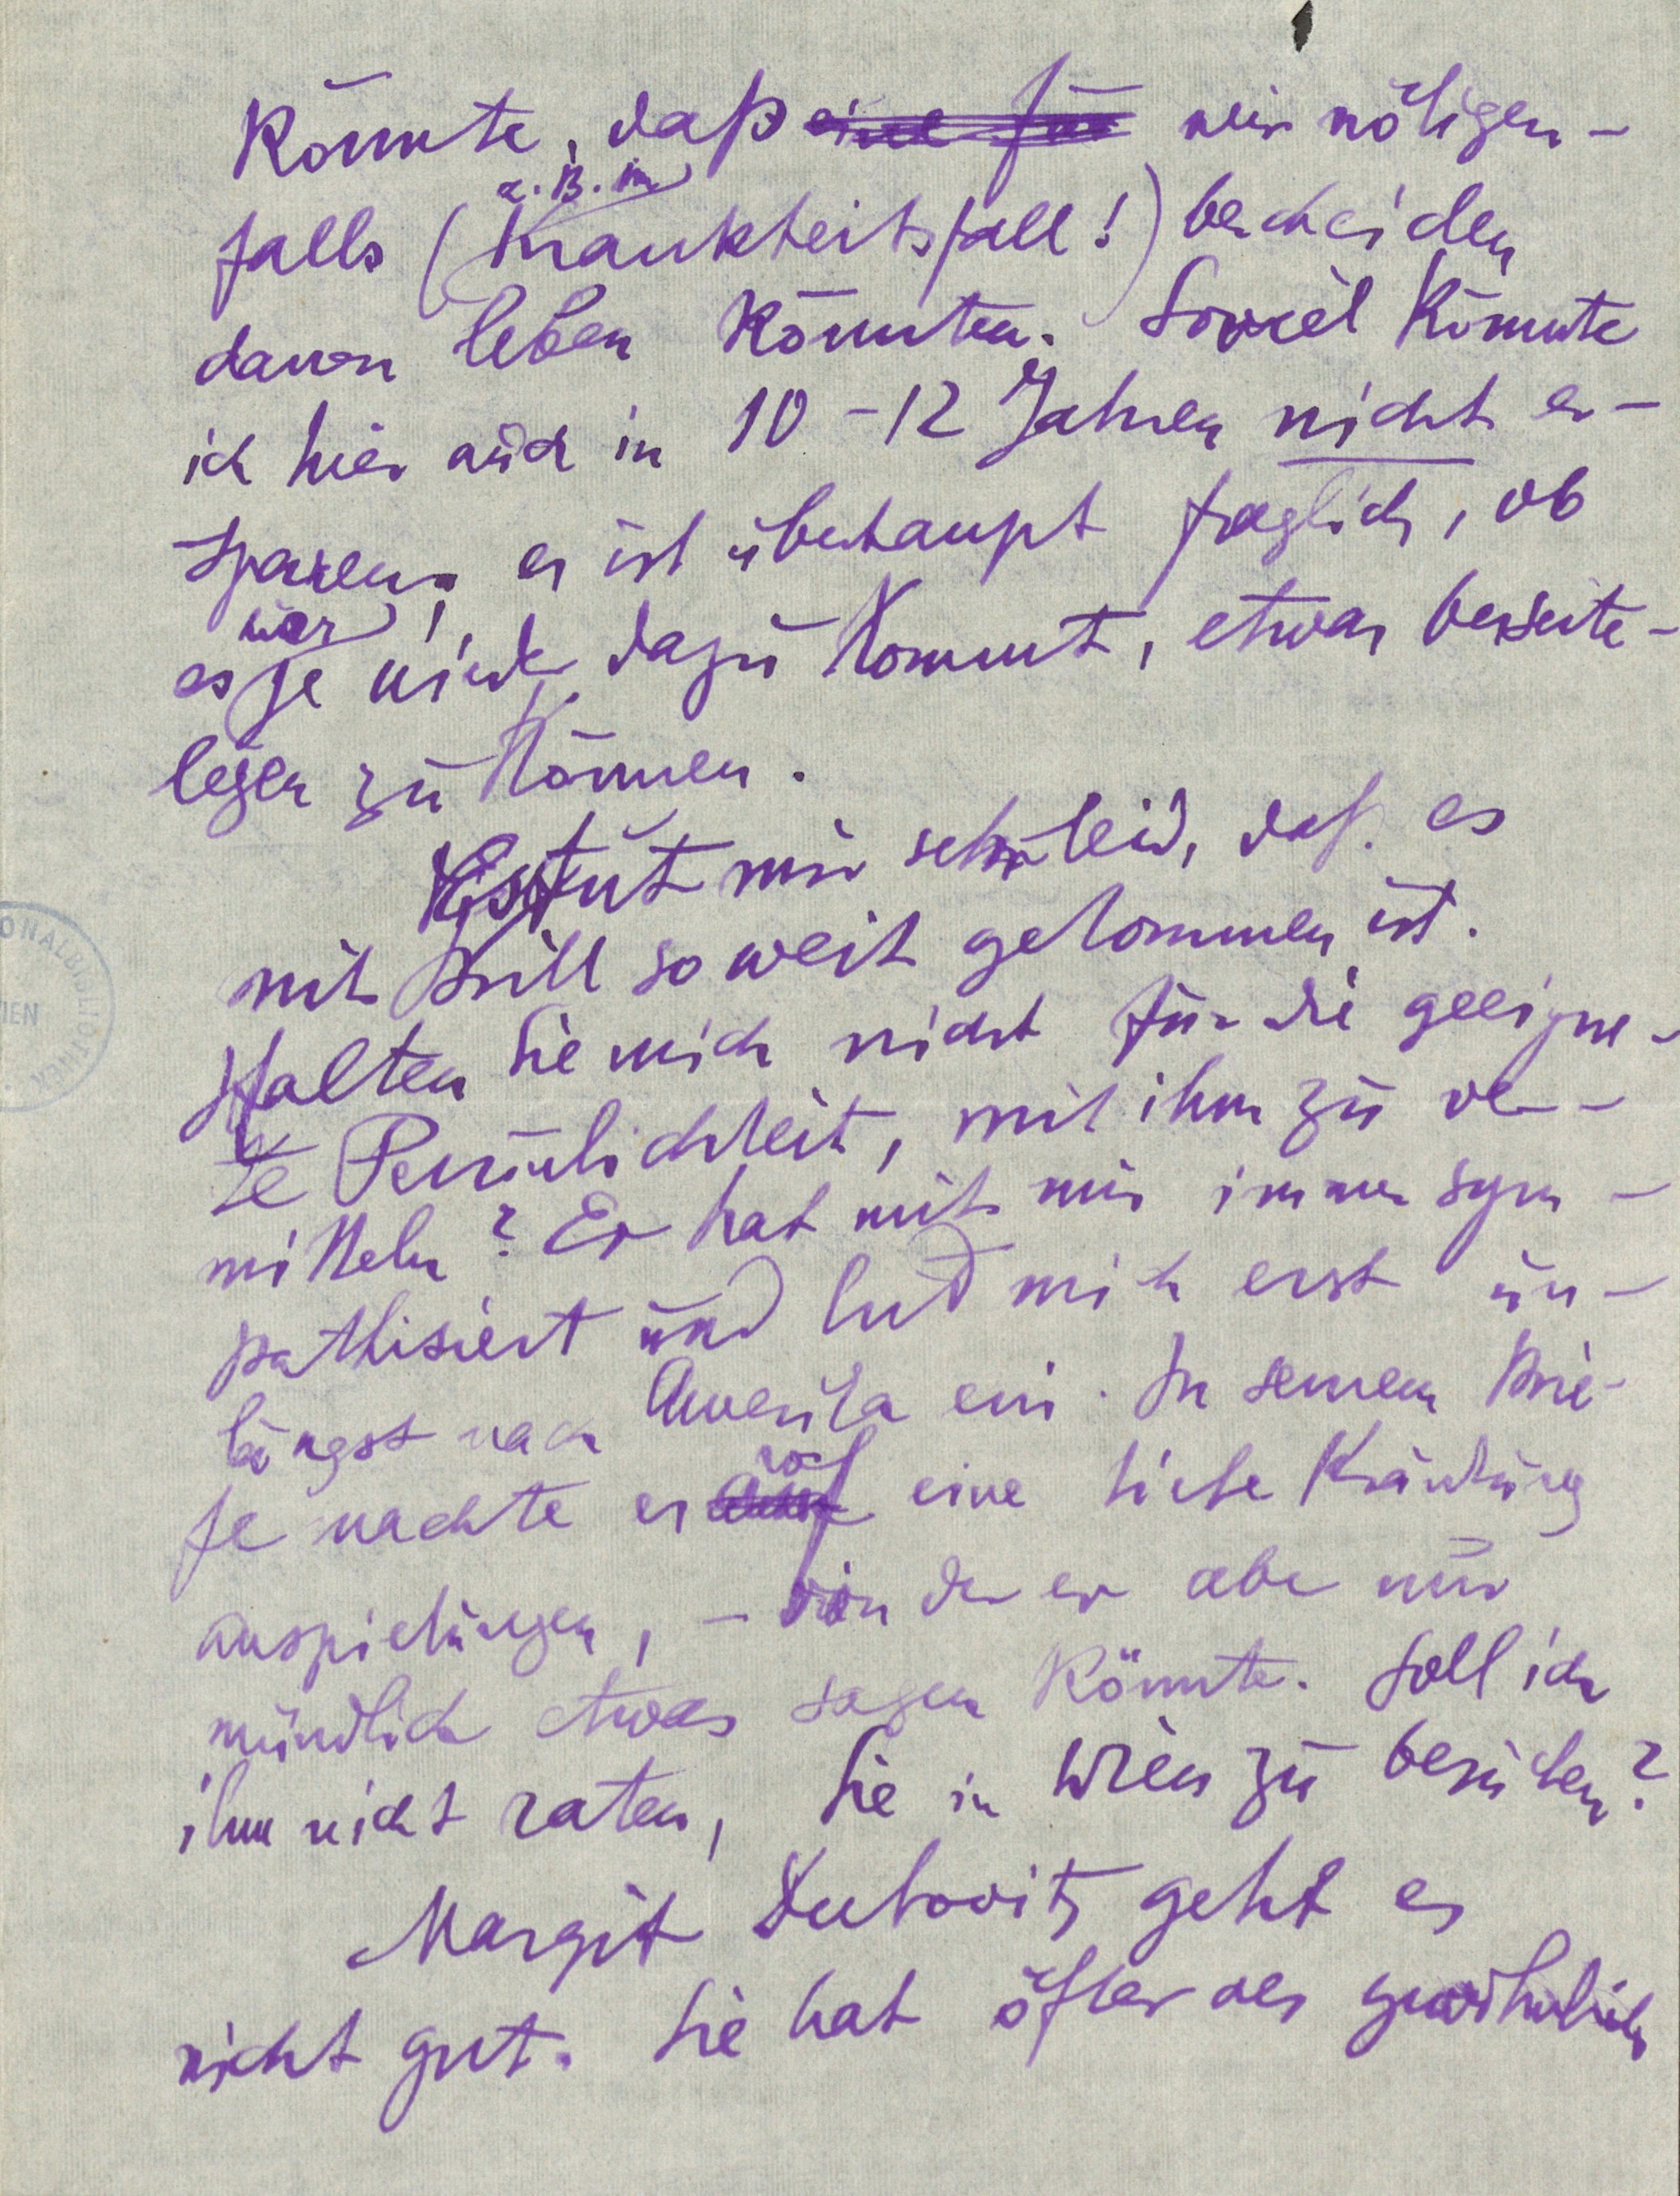 könnte, daß wir nötigen-
z. B. im
falls (Krankheitsfall!) bescheiden
davon leben könnten. Soviel könnte
ich hier auch in 10–12 Jahren nicht er-
sparen; es ist überhaupt fraglich, ob
es je wieder dazu kommt, etwas beiseite-
legen zu können.
Es tut mir sehr leid, daß es
mit Brill so weit gekommen ist.
Halten Sie mich nicht für die geeigne-
te Persönlichkeit, mit ihm zu ver-
mitteln? Er hat mit mir immer sym-
pathisiert und lud mich erst un-
längst nach Amerika ein. In seinem Brie-
fe machte er auf eine tiefe Kränkung
anspielungen, – von der er aber nur
mündlich etwas sagen könnte. Soll ich
ihm nicht raten, Sie in Wien zu besuchen?
Margit Dubovitz geht es
nicht gut. Sie hat öfter als gewöhnlich
ONALBIBLIOTHEK
IEN